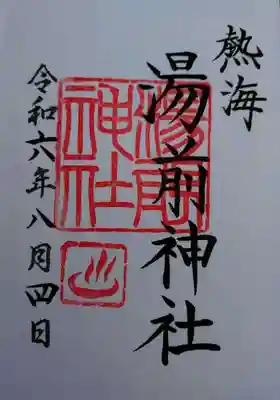 熱海
湯前神社
湯前神社
令和六年八月四日